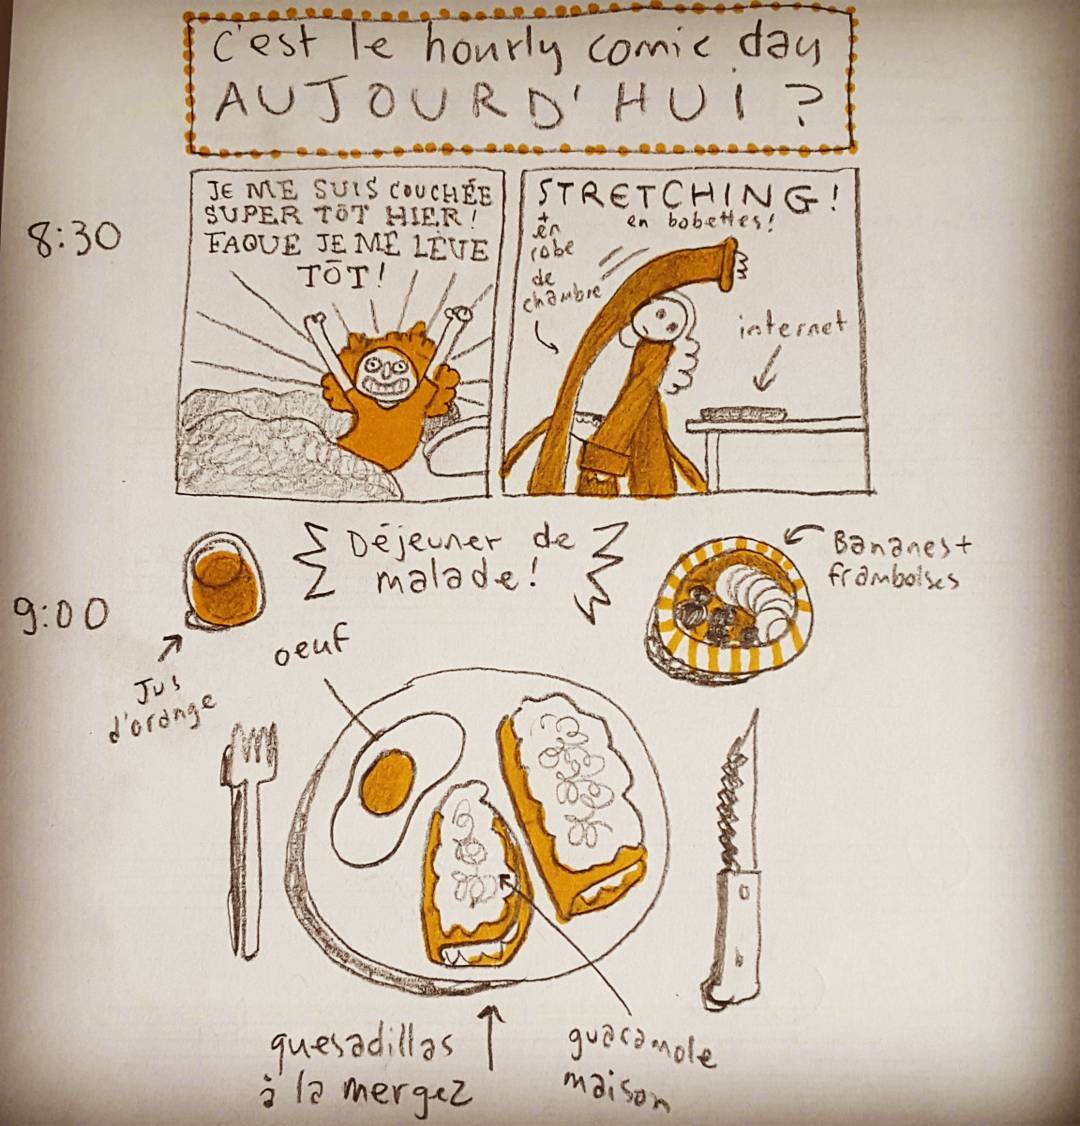 c'est le hourly comic day
AUJOURD'HUI ?
8:30
JE ME SUIS COUCHÉE
SUPER TÔT HIER!
FAQUE JE ME LÈVE
TÔT!
STRETCHING!
en bobettes!
+
en
robe
de
chambre
internet
9:00
Déjeuner de
malade!
Bananes +
framboises
Jus
d'orange
oeuf
quesadillas
à la merguez
guacamole
maison